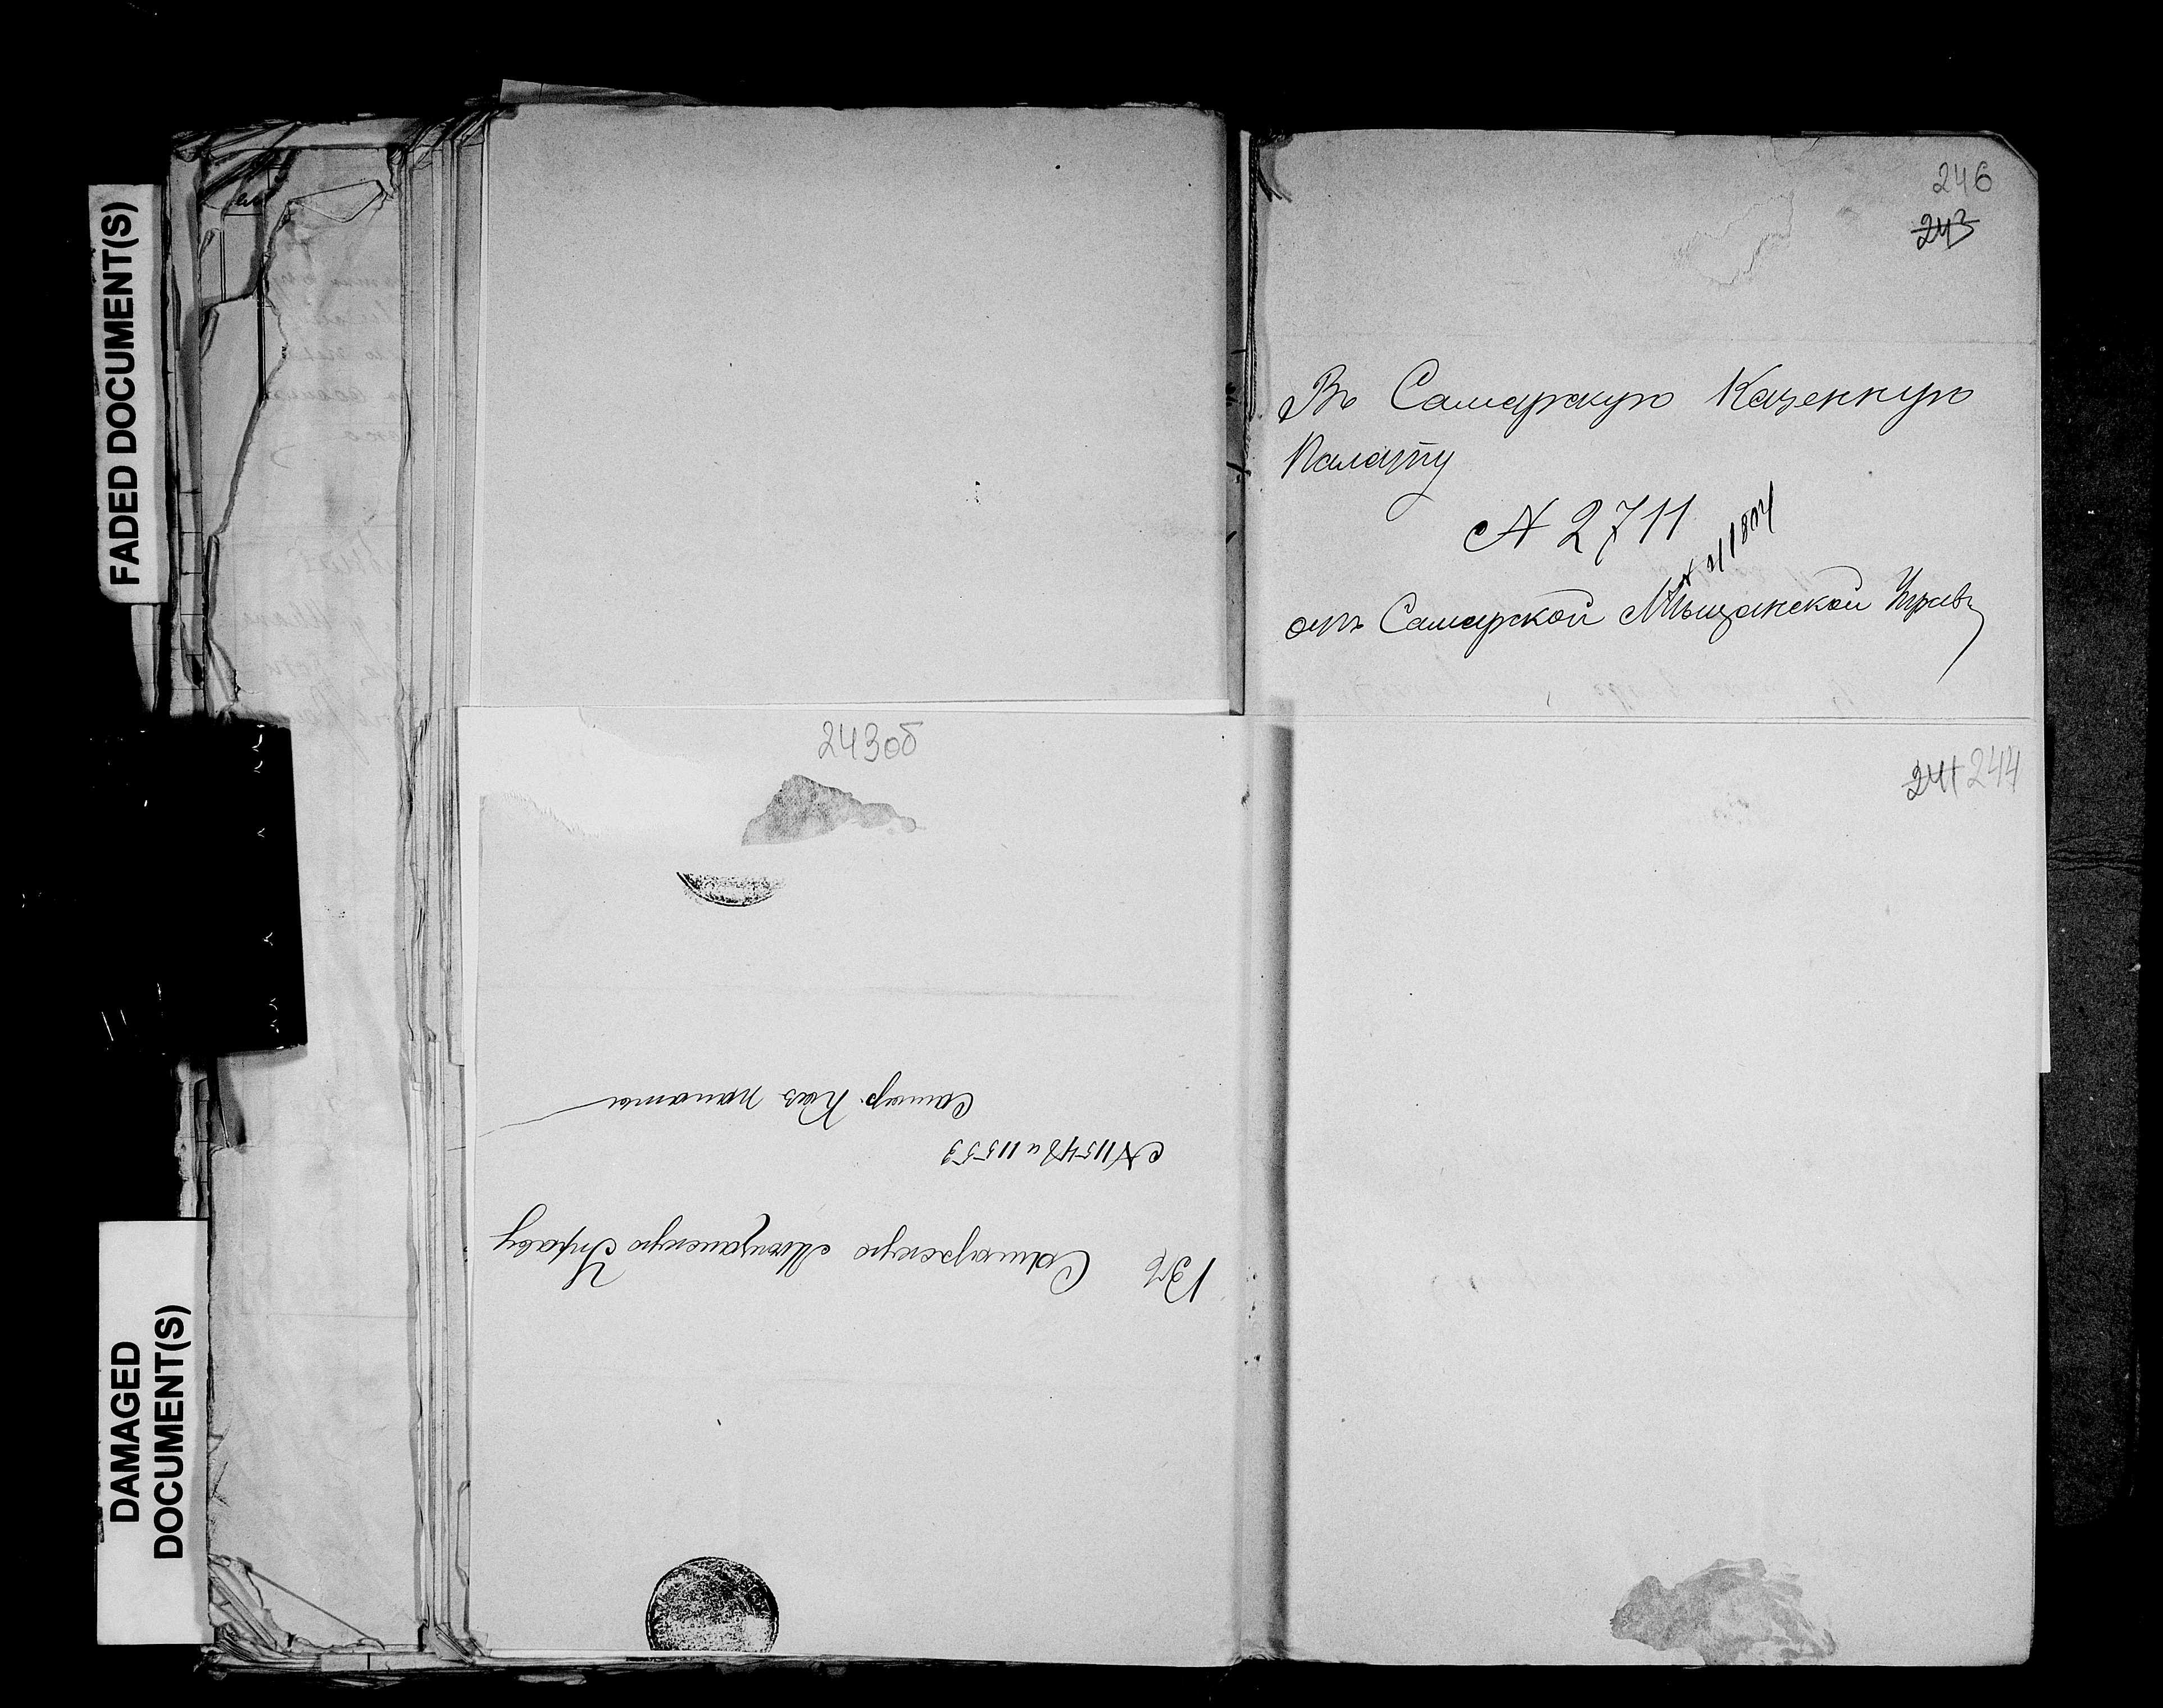 FADED DOCUMENT(S)
DAMAGED
DOCUMENT(S)
246
243
Въ Самарскую Казенную
Палату
№ 2711
отъ Самарской Мѣщанской Управы
243об
Въ Самарскую Мѣщанскую Управу
№ 11548 и 11553
Самар. Каз палаты
241 244